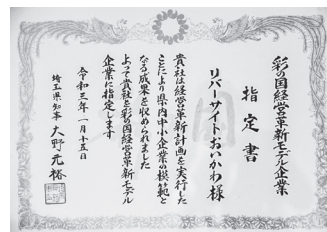 彩の国経営革新モデル企業
指定書
リバーサイトおいかわ様
貴社は経営革新計画を実行した
ことにより県内中小企業の模範と
なる成果を収められました
よって貴社を彩の国経営革新モデル
企業に指定します
令和三年一月十五日
埼玉県知事 大野元裕